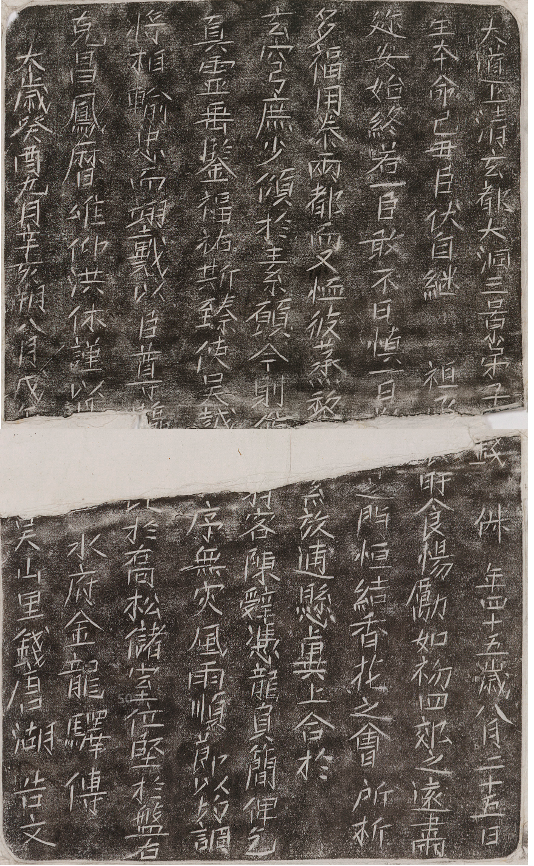 大道上清玄都大洞三景弟子 錢俶年四十五歲八月二十五日
生本命己丑臣伏自繼 祖 時食惕勵如朽四郊之遠肅
延安始終若一臣敢不日慎一日 之所恒結香花之會 所祈
多福用奉兩都而又恤彼蒸黎 茲逋懸真上合於
玄穹乃庶少傾於素願今則 羽客陳辭憑龍負簡俾乞
真靈岳鑒福祐斯臻使吳越 序無灾風雨順節以均調
將相輸忠而翊戴以臣尊 於高松儲室位堅於盤石
克昌鳳曆惟仰洪休謹以 水府金龍驛傳
太歲癸酉九月辛亥朔八日戊 吳山里錢唐湖 告文